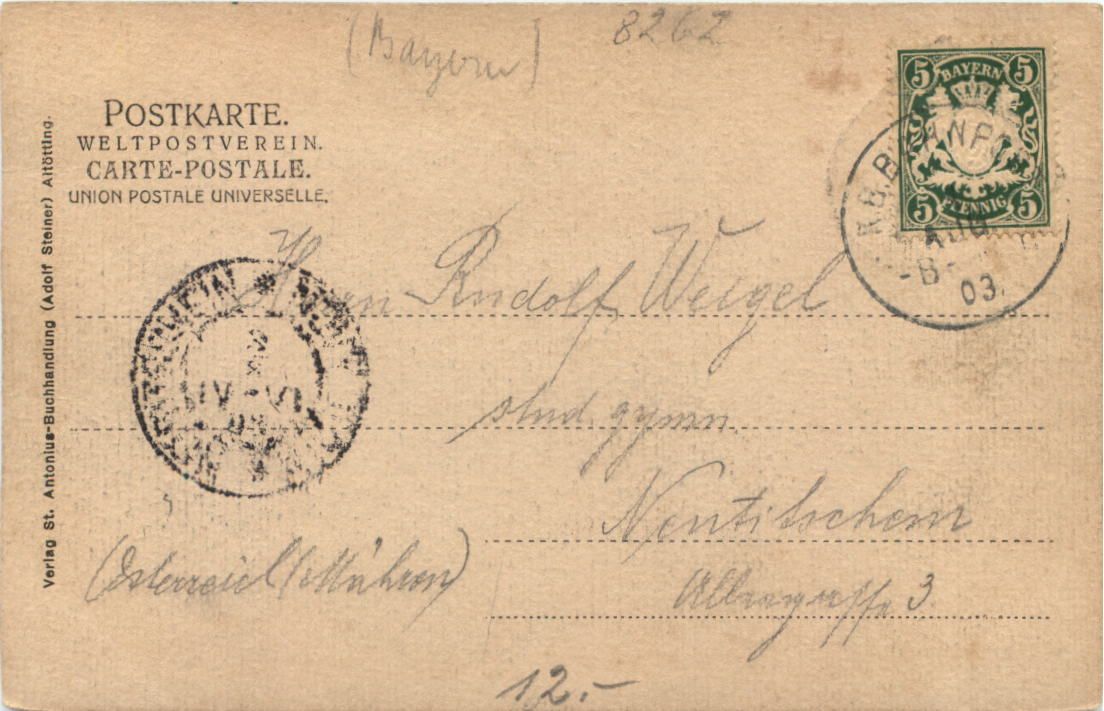 (Bayern)
8262
POSTKARTE.
WELTPOSTVEREIN.
CARTE-POSTALE.
UNION POSTALE UNIVERSELLE.
5 BAYERN 5
5 PFENNIG 5
K.B.BAHNPO
AUG
-B- 03.
Verlag St. Antonius-Buchhandlung (Adolf Steiner) Altötting.
Herrn Rudolf Weigel
stud. gymn.
Neutitschein
(Österreich/Mähren)
3
12.-